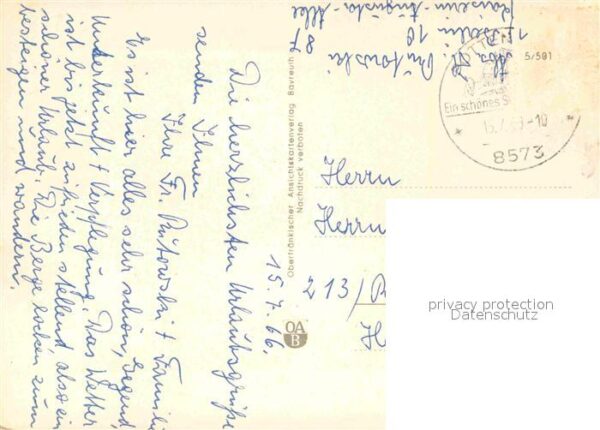 15.7.66.
Die herzlichsten Urlaubsgrüße
senden Ihnen
Ihre Fr. Rutowski + Familie
Es ist hier alles sehr schön, Gegend,
Unterkunft + Verpflegung. Das Wetter
ist bis jetzt zufrieden stellend also ein
schöner Urlaub. Die Berge locken zum
besteigen und wandern.
Oberfränkischer Ansichtskartenverlag Bayreuth
Nachdruck verboten
OAB
Abs. Rutowski
1 Berlin 10
Kaiserin-Augusta-Allee
87
5/581
Ein schönes
-10
8573
Herrn
Herrn
213/
H
privacy protection
Datenschutz